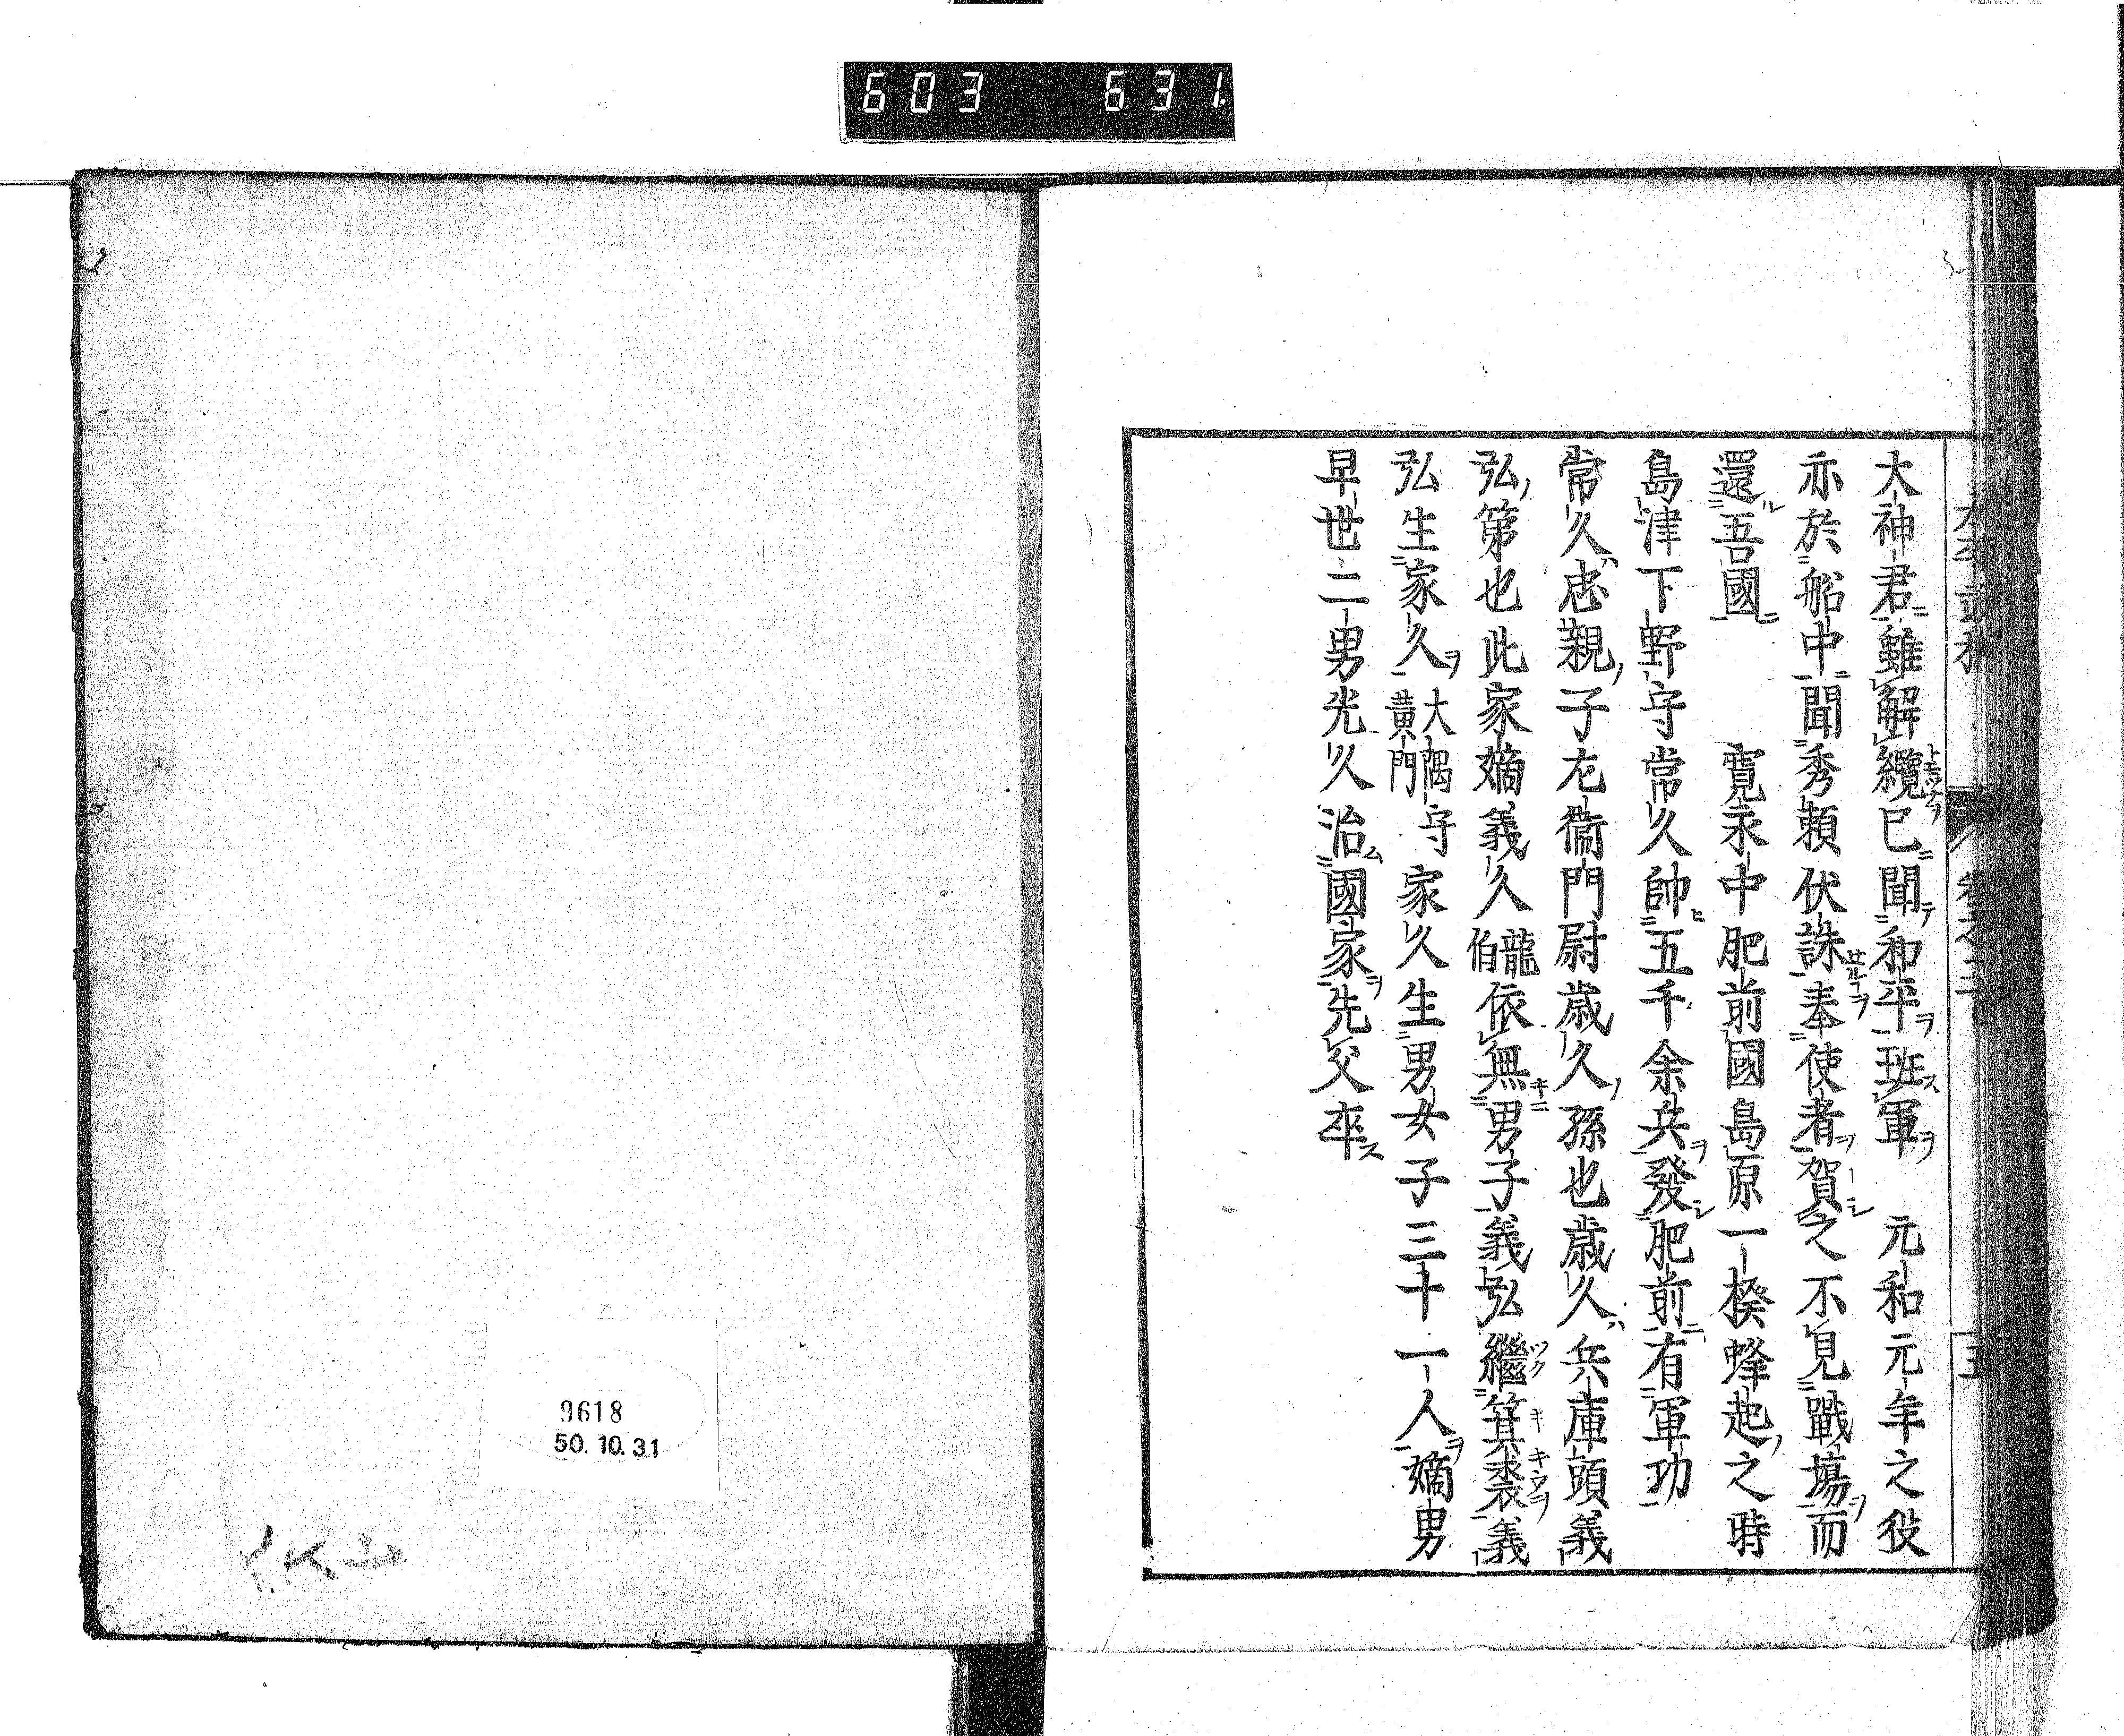 603 631
大神君雖解纜已聞和平班軍 元和元年之役
亦於船中聞秀頼伏誅奉使者賀之不見戰塲而
還吾國 寛永中肥前國島原一揆蜂起之時
島津下野守常久帥五千余兵發肥前有軍功
常久忠親子左衞門尉歳久孫也歳久兵庫頭義
弘第也此家嫡義久龍伯依無男子義弘繼箕裘義
弘生家久大隅守黄門家久生男女子三十一人嫡男
早世二男光久治國家先父卒
卷之三
9618
50.10.31